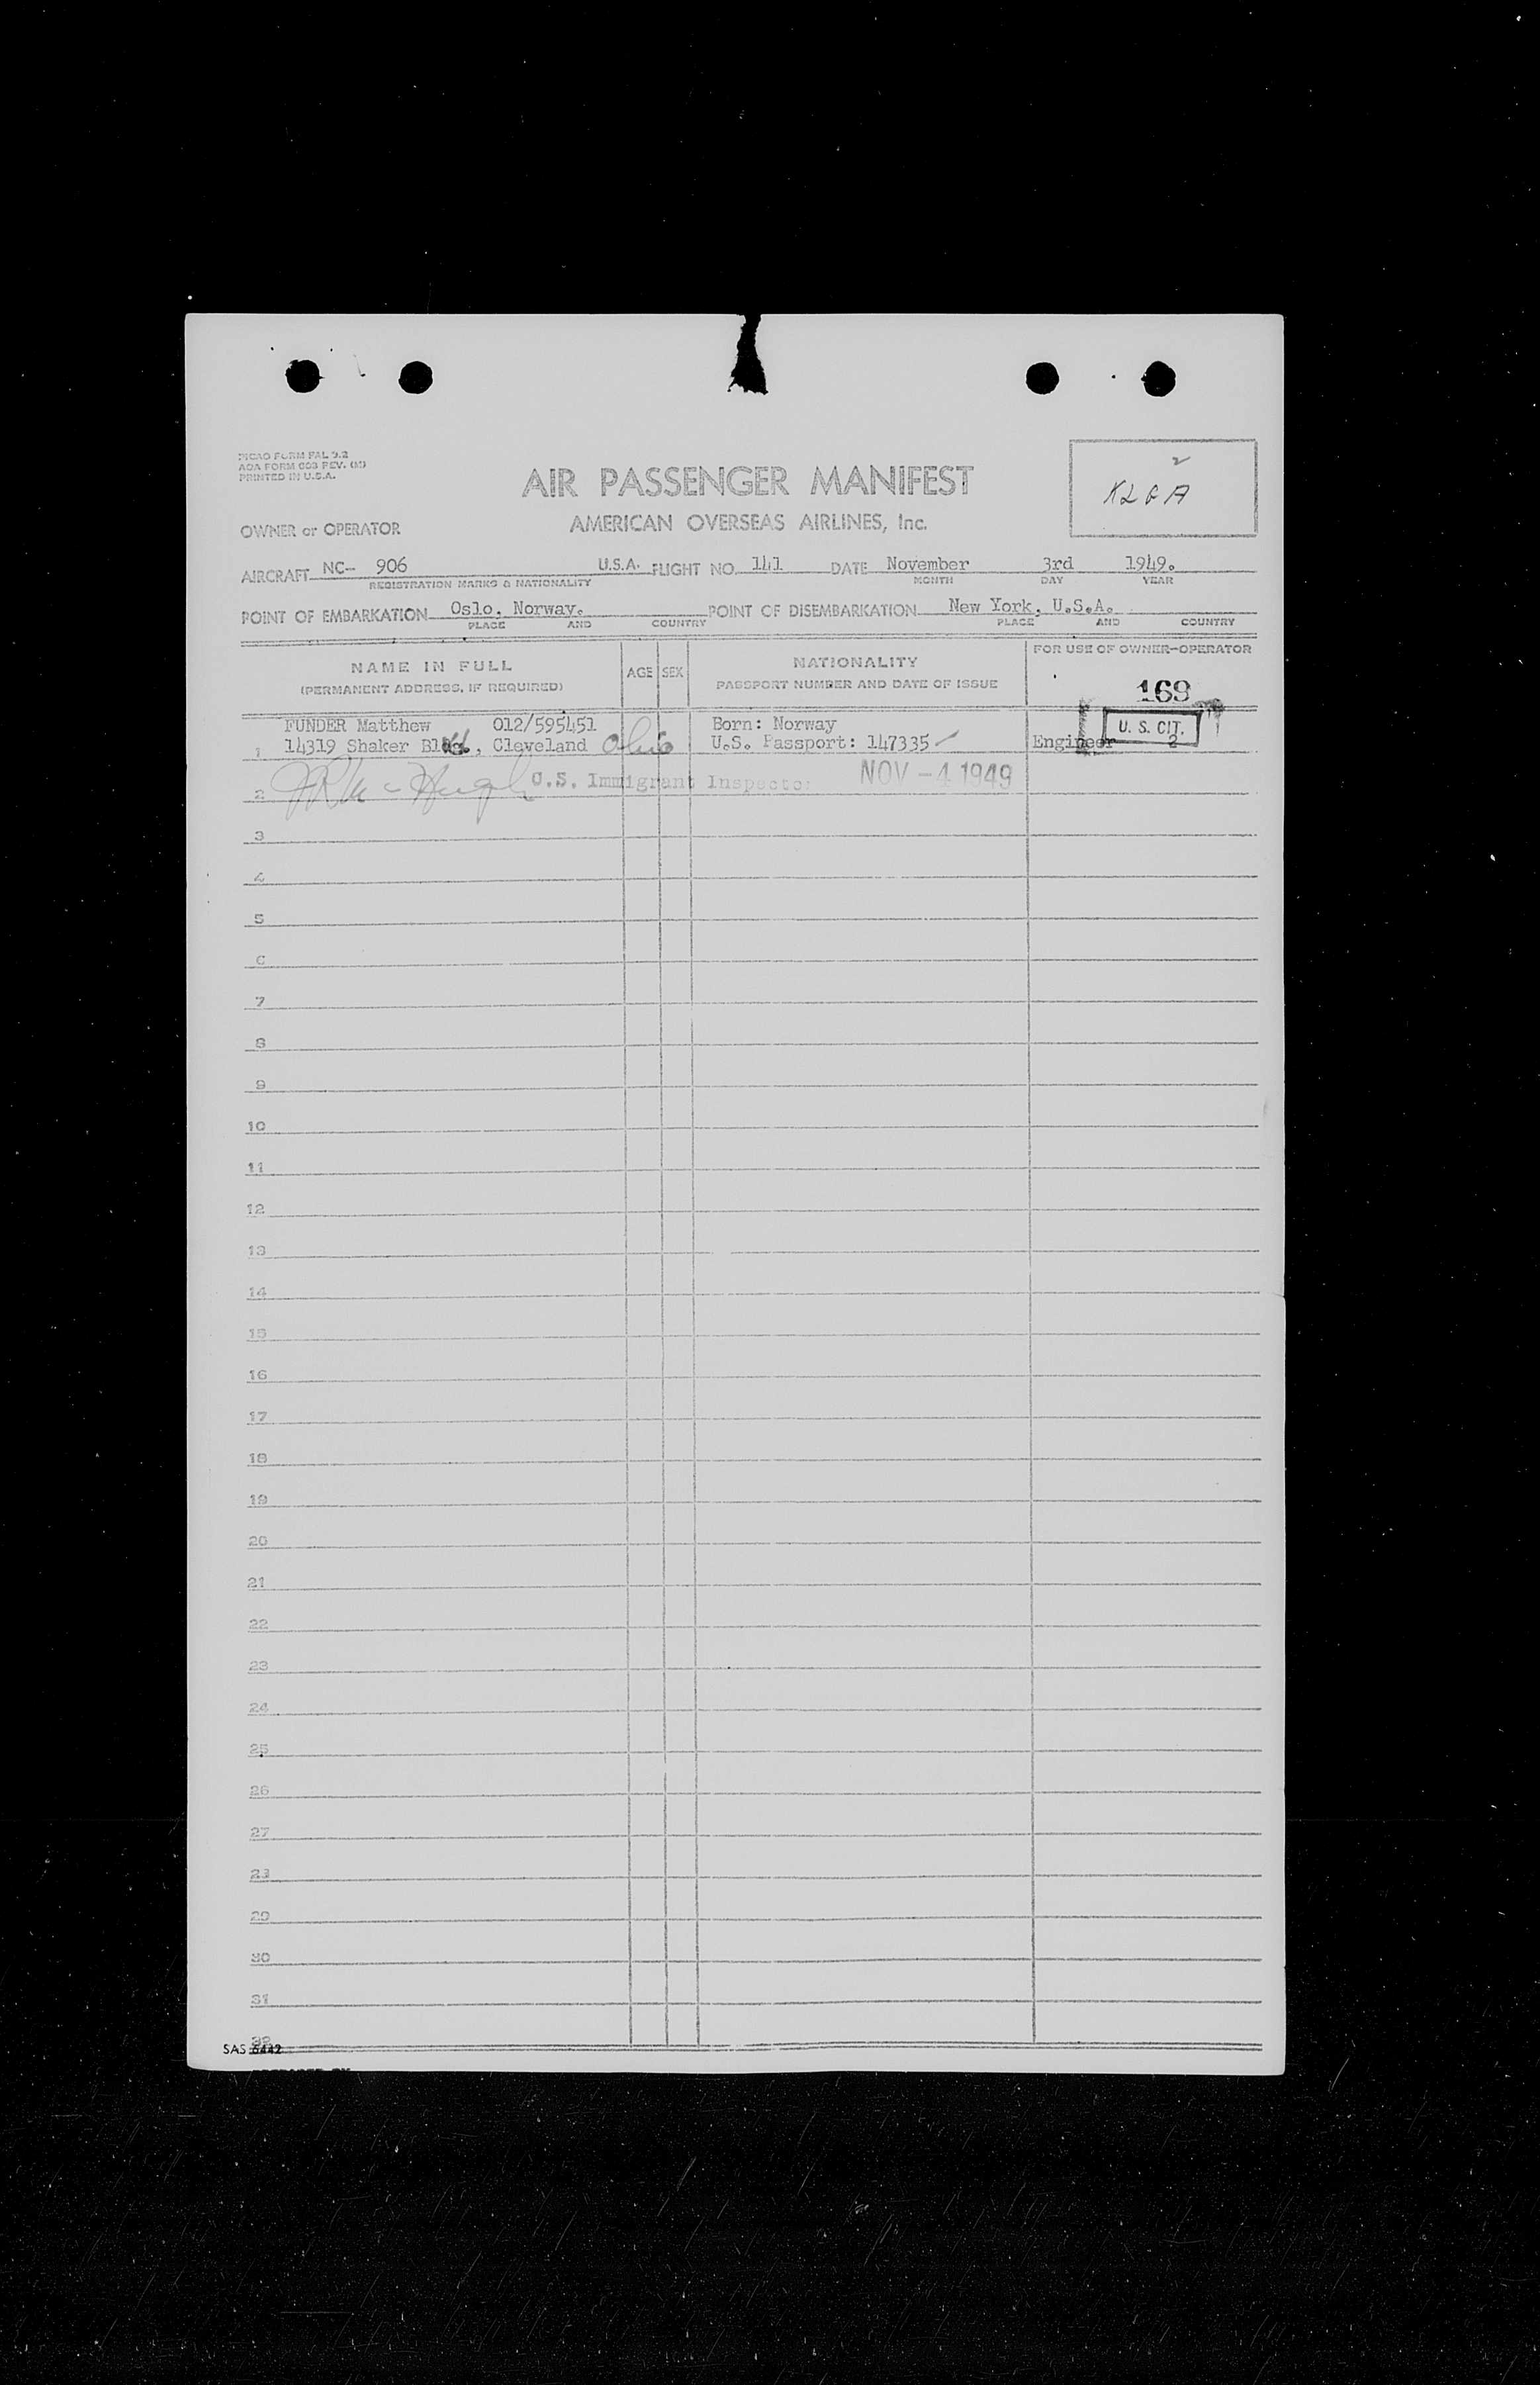 PICAO FORM FAL 9.2
AOA FORM 003 REV. (M)
PRINTED IN U.S.A.
AIR PASSENGER MANIFEST
2
KLGA
OWNER or OPERATOR
AMERICAN OVERSEAS AIRLINES, Inc.
AIRCRAFT NC- 906 U.S.A. FLIGHT NO. 141 DATE November 3rd 1949.
REGISTRATION MARKS & NATIONALITY MONTH DAY YEAR
POINT OF EMBARKATION Oslo, Norway. POINT OF DISEMBARKATION New York, U.S.A.
PLACE AND COUNTRY PLACE AND COUNTRY
NAME IN FULL AGE SEX NATIONALITY FOR USE OF OWNER-OPERATOR
(PERMANENT ADDRESS, IF REQUIRED) PASSPORT NUMBER AND DATE OF ISSUE 168
FUNDER Matthew 012/595451 Born: Norway U. S. CIT.
1 14319 Shaker , Cleveland Ohio U.S. Passport: 147335 Engineer 2
2 U.S. Immigrant Inspector NOV -4 1949
3
4
5
6
7
8
9
10
11
12
13
14
15
16
17
18
19
20
21
22
23
24
25
26
27
28
29
30
31
32
SAS 6442
PREPARED BY